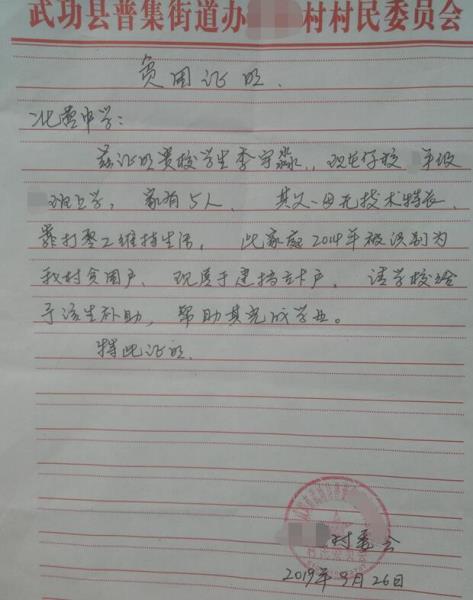 武功县普集街道办 村村民委员会
贫困证明.
北营中学:
兹证明贵校学生李宇淼, 现在仔校 年级
班上学, 家有5人, 其父、母无技术特长,
靠打零工维持生活, 此家庭2014年被识别为
我村贫困户, 现属于建档立卡户, 请学校给
予该生补助, 帮助其完成学业。
特此证明.
村委会
2019年9月26日